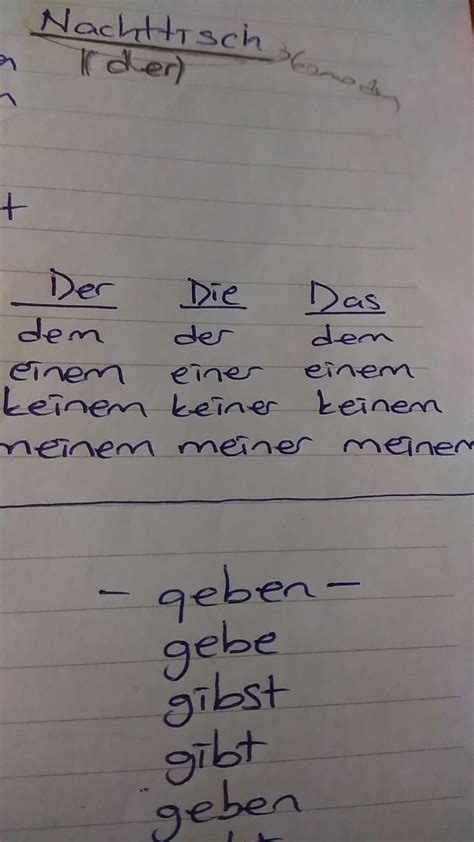 Nachttisch
(der)
Der Die Das
dem der dem
einem einer einem
keinem keiner keinem
meinem meiner meinem
- geben -
gebe
gibst
gibt
geben